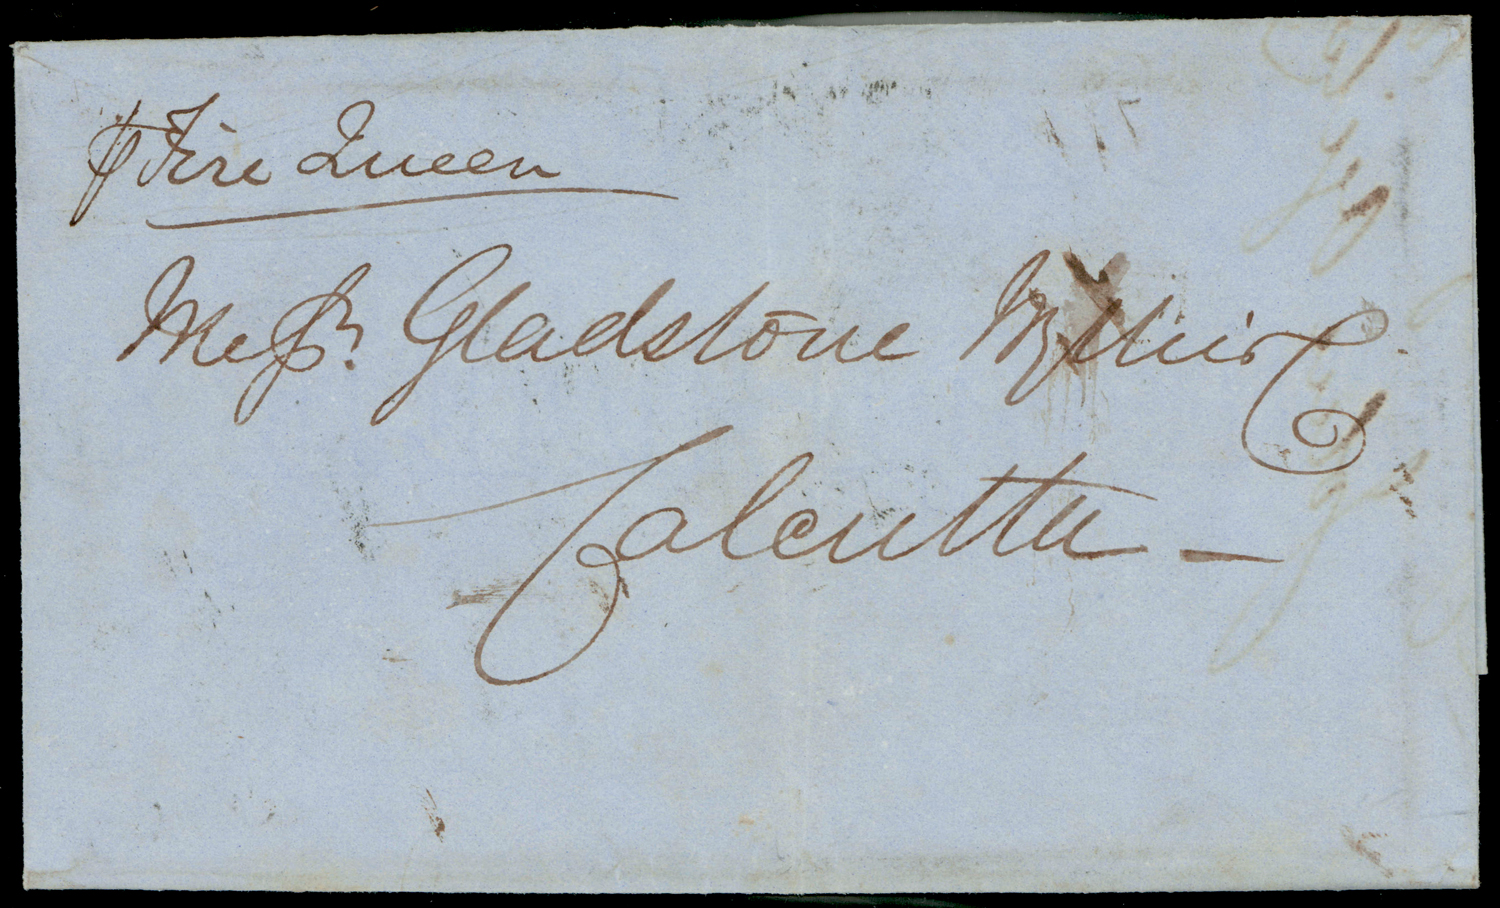 p Fire Queen
Messrs. Gladstone Wyllie & Co
Calcutta —